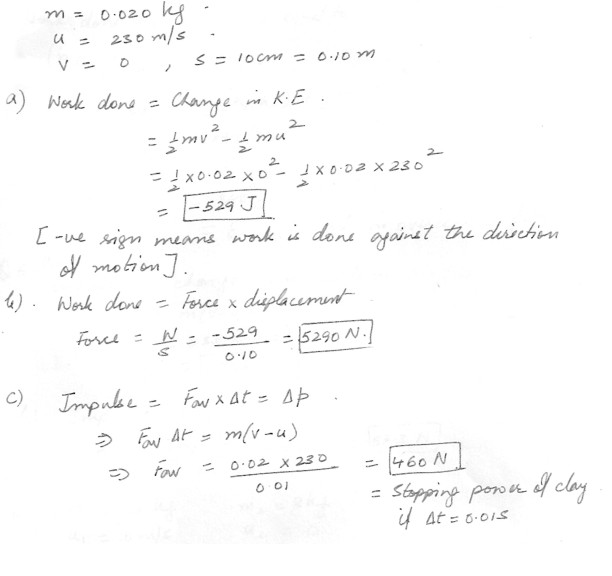 m = 0.020 kg .
u = 230 m/s .
v = 0 , s = 10cm = 0.10 m
a) Work done = Change in K.E .
= 1/2 mv² - 1/2 mu²
= 1/2 x 0.02 x 0² - 1/2 x 0.02 x 230²
= -529 J
[ -ve sign means work is done against the direction
of motion ].
b) . Work done = Force x displacement
Force = W/S = -529/0.10 = 5290 N.
c) Impulse = Fav x Δt = Δp .
⇒ Fav Δt = m(v-u)
⇒ Fav = 0.02 x 230 / 0.01 = 460 N
= Stopping power of clay
if Δt = 0.01s